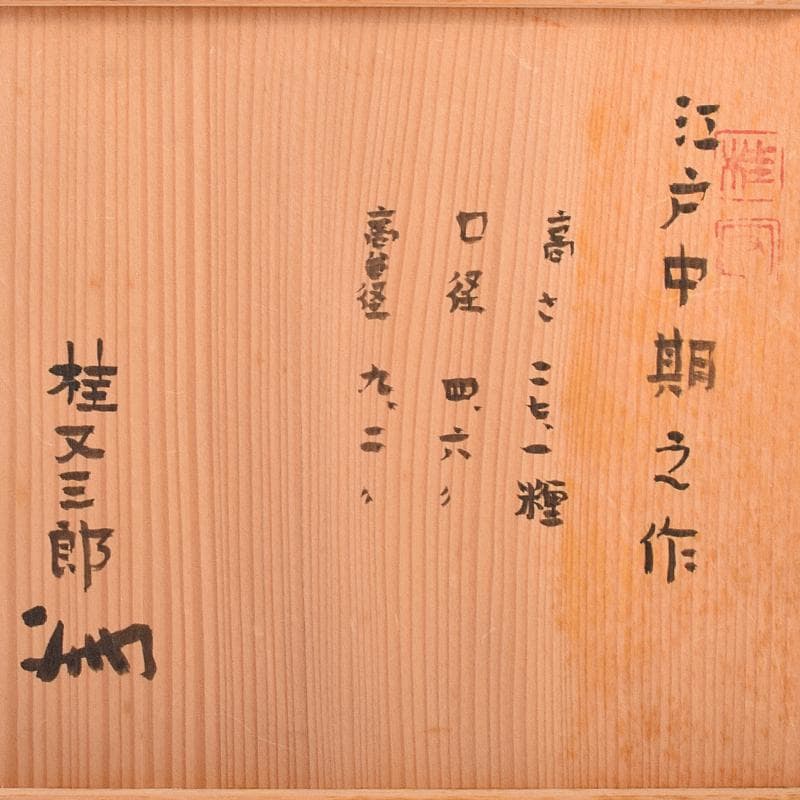 江戸中期之作
高さ 二七、一糎
口径 四、六〃
高台径 九、二〃
桂又三郎